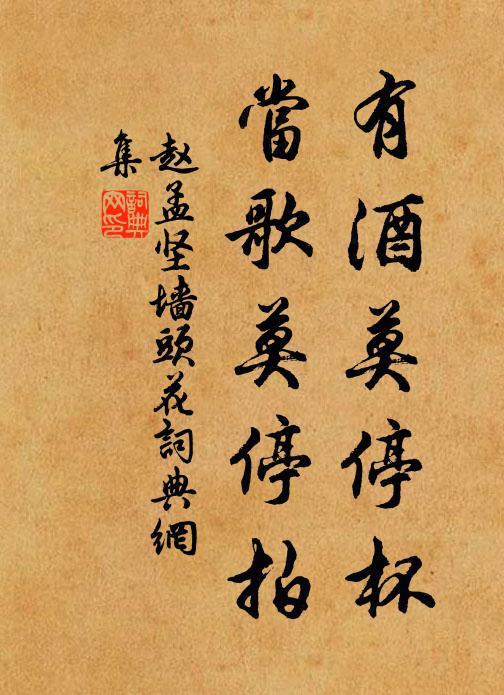 有酒莫停杯
當歌莫停拍
赵孟坚墙頭花詞典網
集
詞典
网印